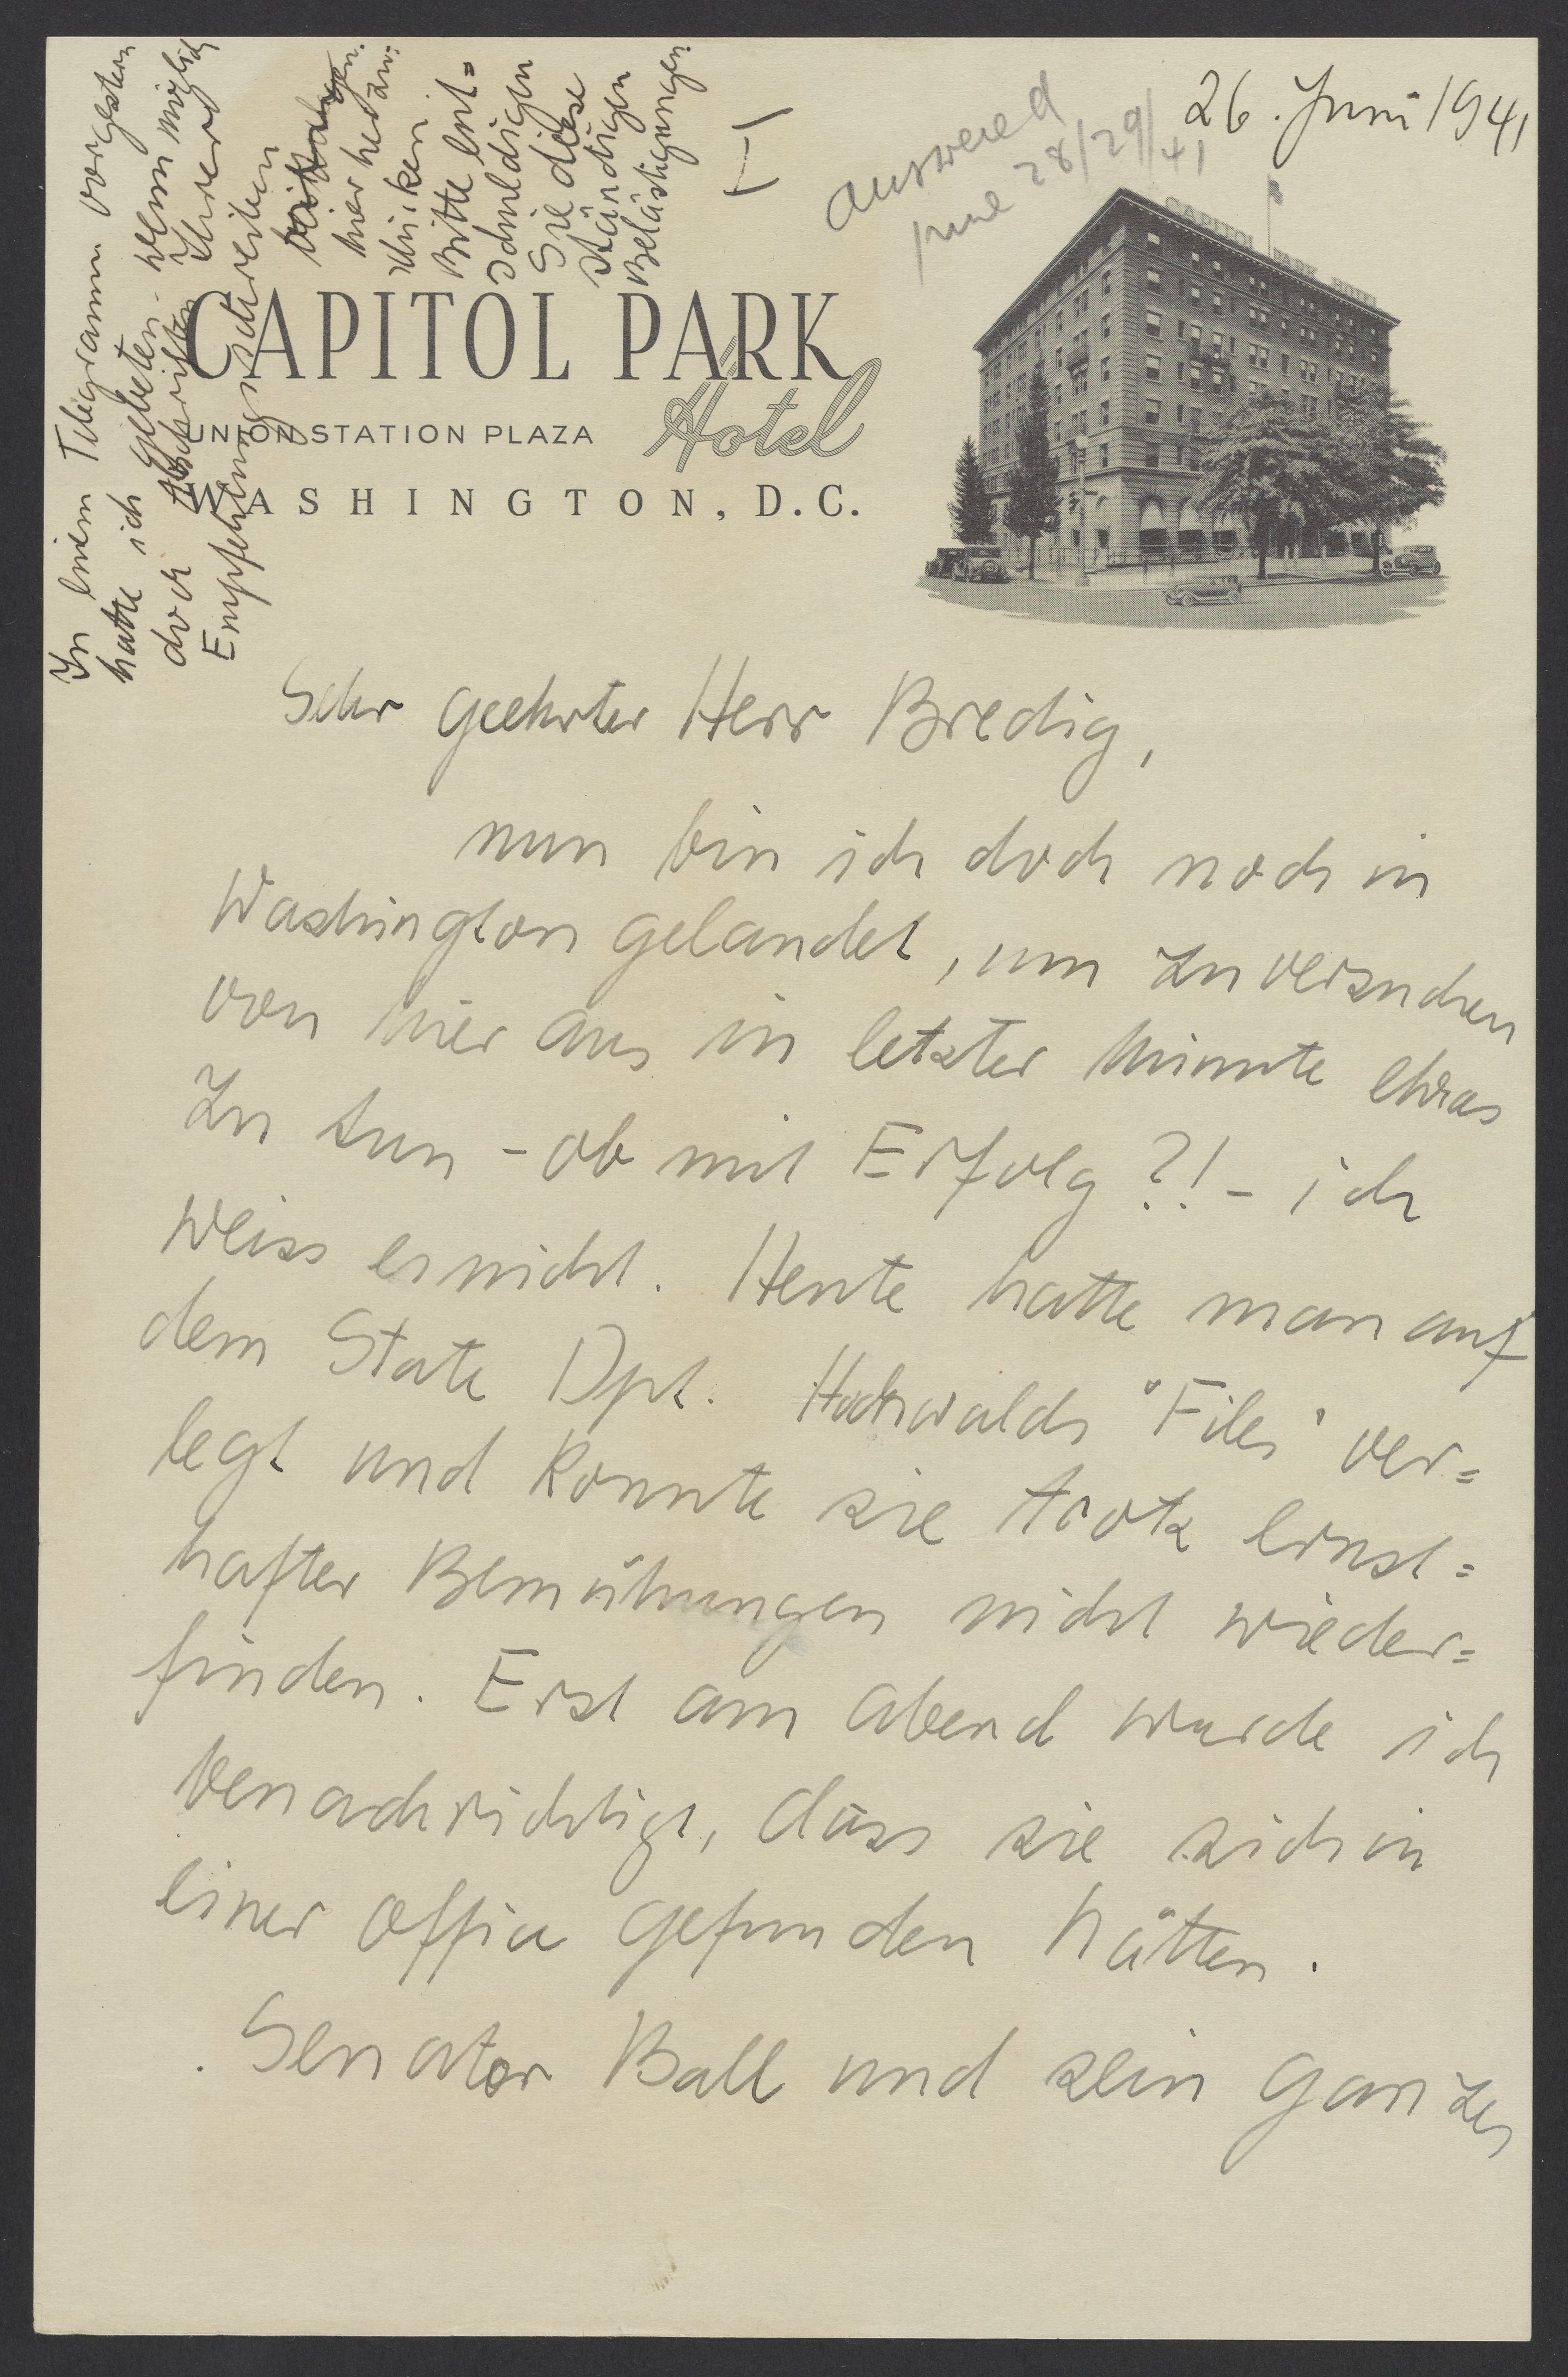 26. Juni 1941
answered
june 28/29/41
In einem Telegramm vorgestern
hatte ich gebeten - wenn möglich
doch Abschriften Ihrer
Empfehlungsschreiben
hierher
schicken
Bitte ent=
schuldigen
Sie diese
ständigen
Belästigungen.
CAPITOL PARK HOTEL
CAPITOL PARK
Hotel
UNION STATION PLAZA
WASHINGTON, D.C.
Sehr geehrter Herr Bredig,
nun bin ich doch noch in
Washington gelandet, um zu versuchen
von hier aus in letzter Minute etwas
zu tun - ob mit Erfolg ?! - ich
weiss es nicht. Heute hatte man auf
dem State Dpt. Hochwalds "Files" ver=
legt und konnte sie trotz ernst=
hafter Bemühungen nicht wieder=
finden. Erst am Abend wurde ich
benachrichtigt, dass sie sich in
einer Office gefunden hätten.
Senator Ball und sein ganzes